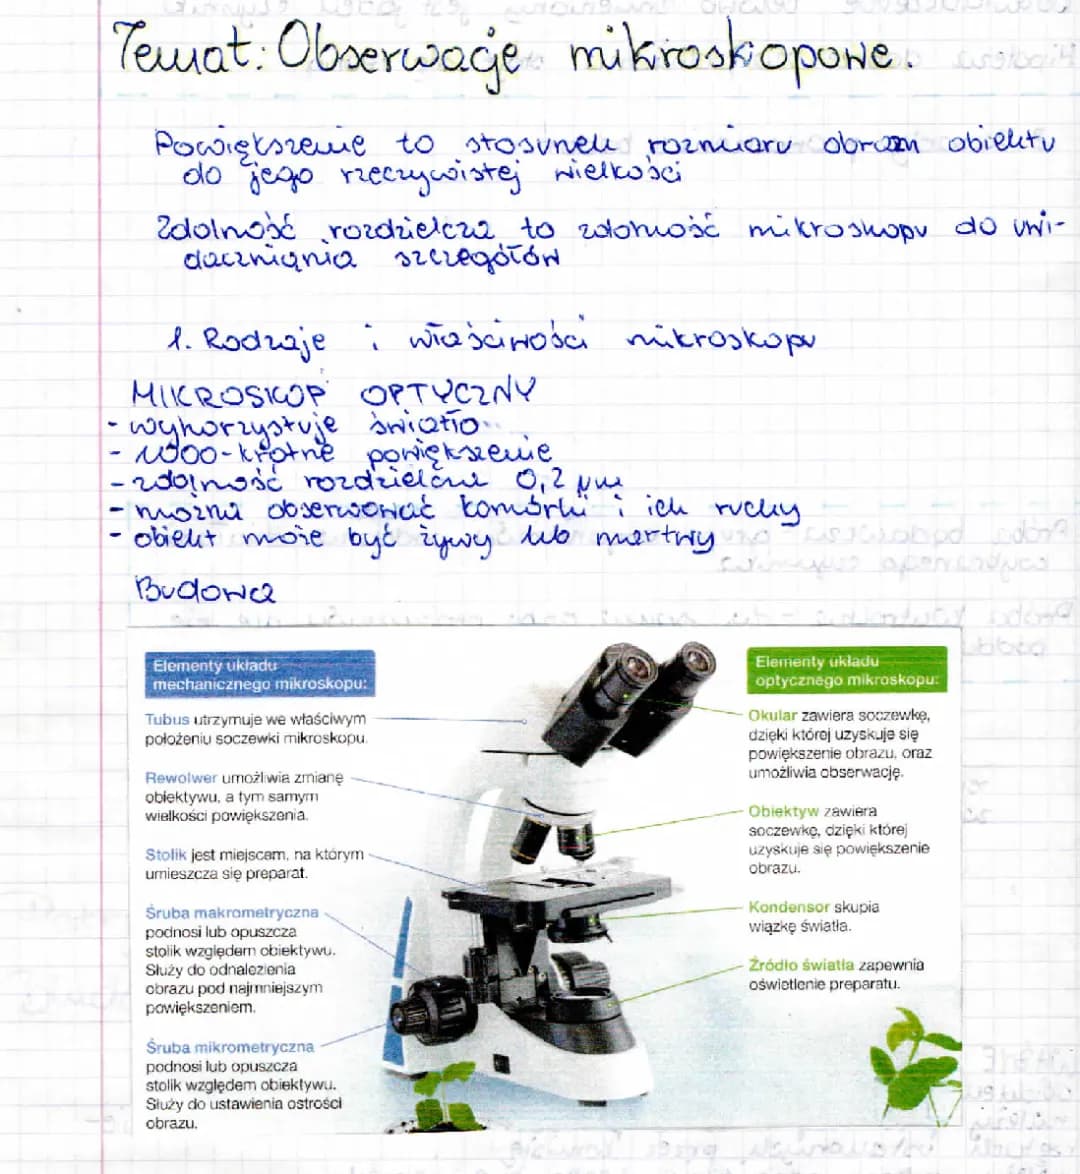 Temat: Obserwacje mikroskopowe.
Powiększenie to stosunek rozmiaru obrazu obiektu
do jego rzeczywistej wielkości
Zdolność rozdzielcza to zdolność mikroskopu do uwi-
daczniania szczegółów
1. Rodzaje i właściwości mikroskopu
MIKROSKOP OPTYCZNY
- wykorzystuje światło
- 1000-krotne powiększenie
- zdolność rozdzielcza 0,2 µm
- można obserwować komórki i ich ruchy
- obiekt może być żywy lub martwy
Budowa
Elementy układu
mechanicznego mikroskopu:
Tubus utrzymuje we właściwym
położeniu soczewki mikroskopu.
Rewolwer umożliwia zmianę
obiektywu, a tym samym
wielkości powiększenia.
Stolik jest miejscem, na którym
umieszcza się preparat.
Śruba makrometryczna
podnosi lub opuszcza
stolik względem obiektywu.
Służy do odnalezienia
obrazu pod najmniejszym
powiększeniem.
Śruba mikrometryczna
podnosi lub opuszcza
stolik względem obiektywu.
Służy do ustawienia ostrości
obrazu.
Elementy układu
optycznego mikroskopu:
Okular zawiera soczewkę,
dzięki której uzyskuje się
powiększenie obrazu, oraz
umożliwia obserwację.
Obiektyw zawiera
soczewkę, dzięki której
uzyskuje się powiększenie
obrazu.
Kondensor skupia
wiązkę światła.
Źródło światła zapewnia
oświetlenie preparatu.